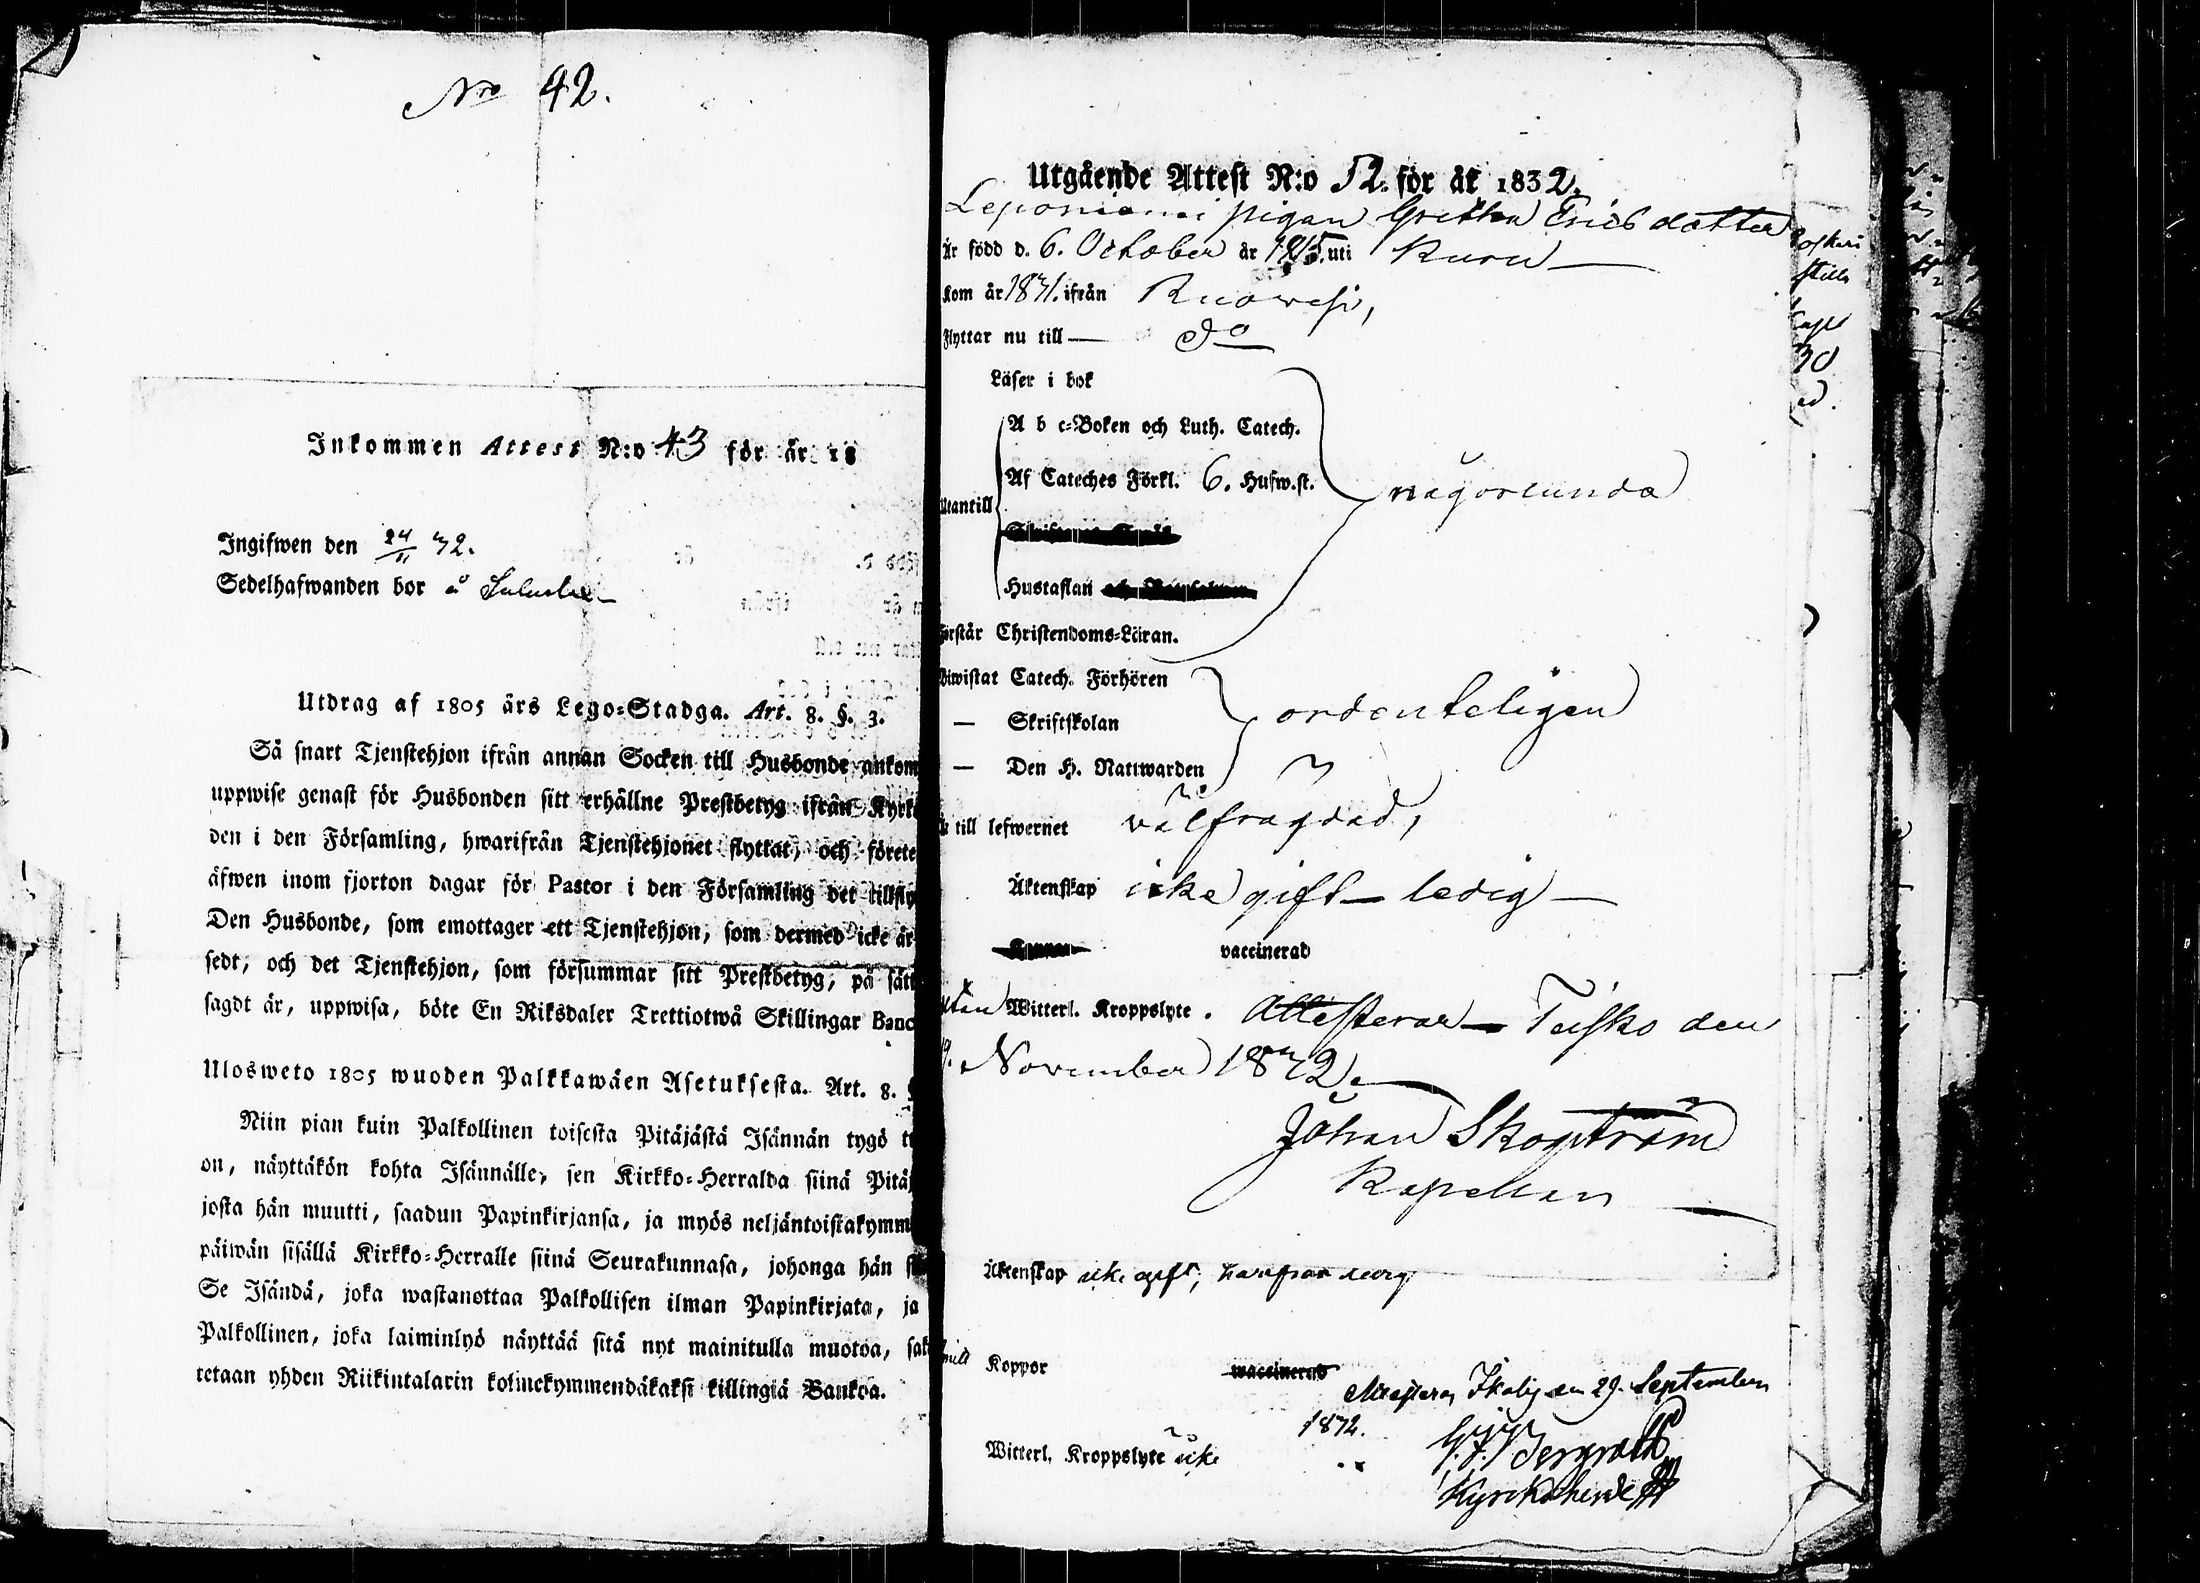 Nro 42.
Inkommen Attest N:o 43 för år 18
Ingifwen den 24/11 32.
Sedelhafwanden bor å
Utdrag af 1805 års Lego-Stadga. Art. 8. §. 3.
Så snart Tjenstehjon ifrån annan Socken till Husbonde ankom
uppwise genast för Husbonden sitt erhållne Prestbetyg ifrån Kyrk
den i den Församling, hwarifrån Tjenstehjonet flyttat, och förete
äfwen inom fjorton dagar för Pastor i den Församling det tillfly
Den Husbonde, som emottager ett Tjenstehjon, som dermed icke är
sedt, och det Tjenstehjon, som försummar sitt Prestbetyg, på sätt
sagdt är, uppwisa, böte En Riksdaler Trettiotwå Skillingar Banc
Ulosweto 1805 wuoden Palkkawäen Asetuksesta. Art. 8. §
Niin pian kuin Palkollinen toisesta Pitäjästä Isännän tygö t
on, näyttäkön kohta Isännälle, sen Kirkko-Herralda siinä Pitäj
josta hän muutti, saadun Papinkirjansa, ja myös neljäntoistakymm
päiwän sisällä Kirkko-Herralle siinä Seurakunnasa, johonga hän
Se Isändä, joka wastanottaa Palkollisen ilman Papinkirjata, ja
Palkollinen, joka laiminlyö näyttää sitä nyt mainitulla muotoa, sak
tetaan yhden Riikintalarin kolmekymmendäkaksi killingiä Bankoa.
Utgående Attest N:o 52. för år 1832.
Leponiemi pigan Gretha Ericsdotter
Är född d. 6. October år 1815. uti Kuru
Kom år 1831. ifrån Ruowesi,
Flyttar nu till — do
Läser i bok
A b c-Boken och Luth. Catech.
Af Cateches Förkl. 6. Hufw.st.
Utantill
någorlunda
Hustaflan
Förstår Christendoms-Läran.
Biwistat Catech. Förhören
— Skriftskolan
ordenteligen
— Den H. Nattwarden
till lefwernet välfrägdad,
Äktenskap icke gift — ledig —
vaccinerad
utan Witterl. Kroppslyte. Attesterar — Teisko den
November 1832.
Johan Skogström
Kapellan
Äktenskap icke gift,
Koppor
waccinerad
Attesteras, Ikalis den 29. September
1832.
Witterl. Kroppslyte icke
Kyrkoherde